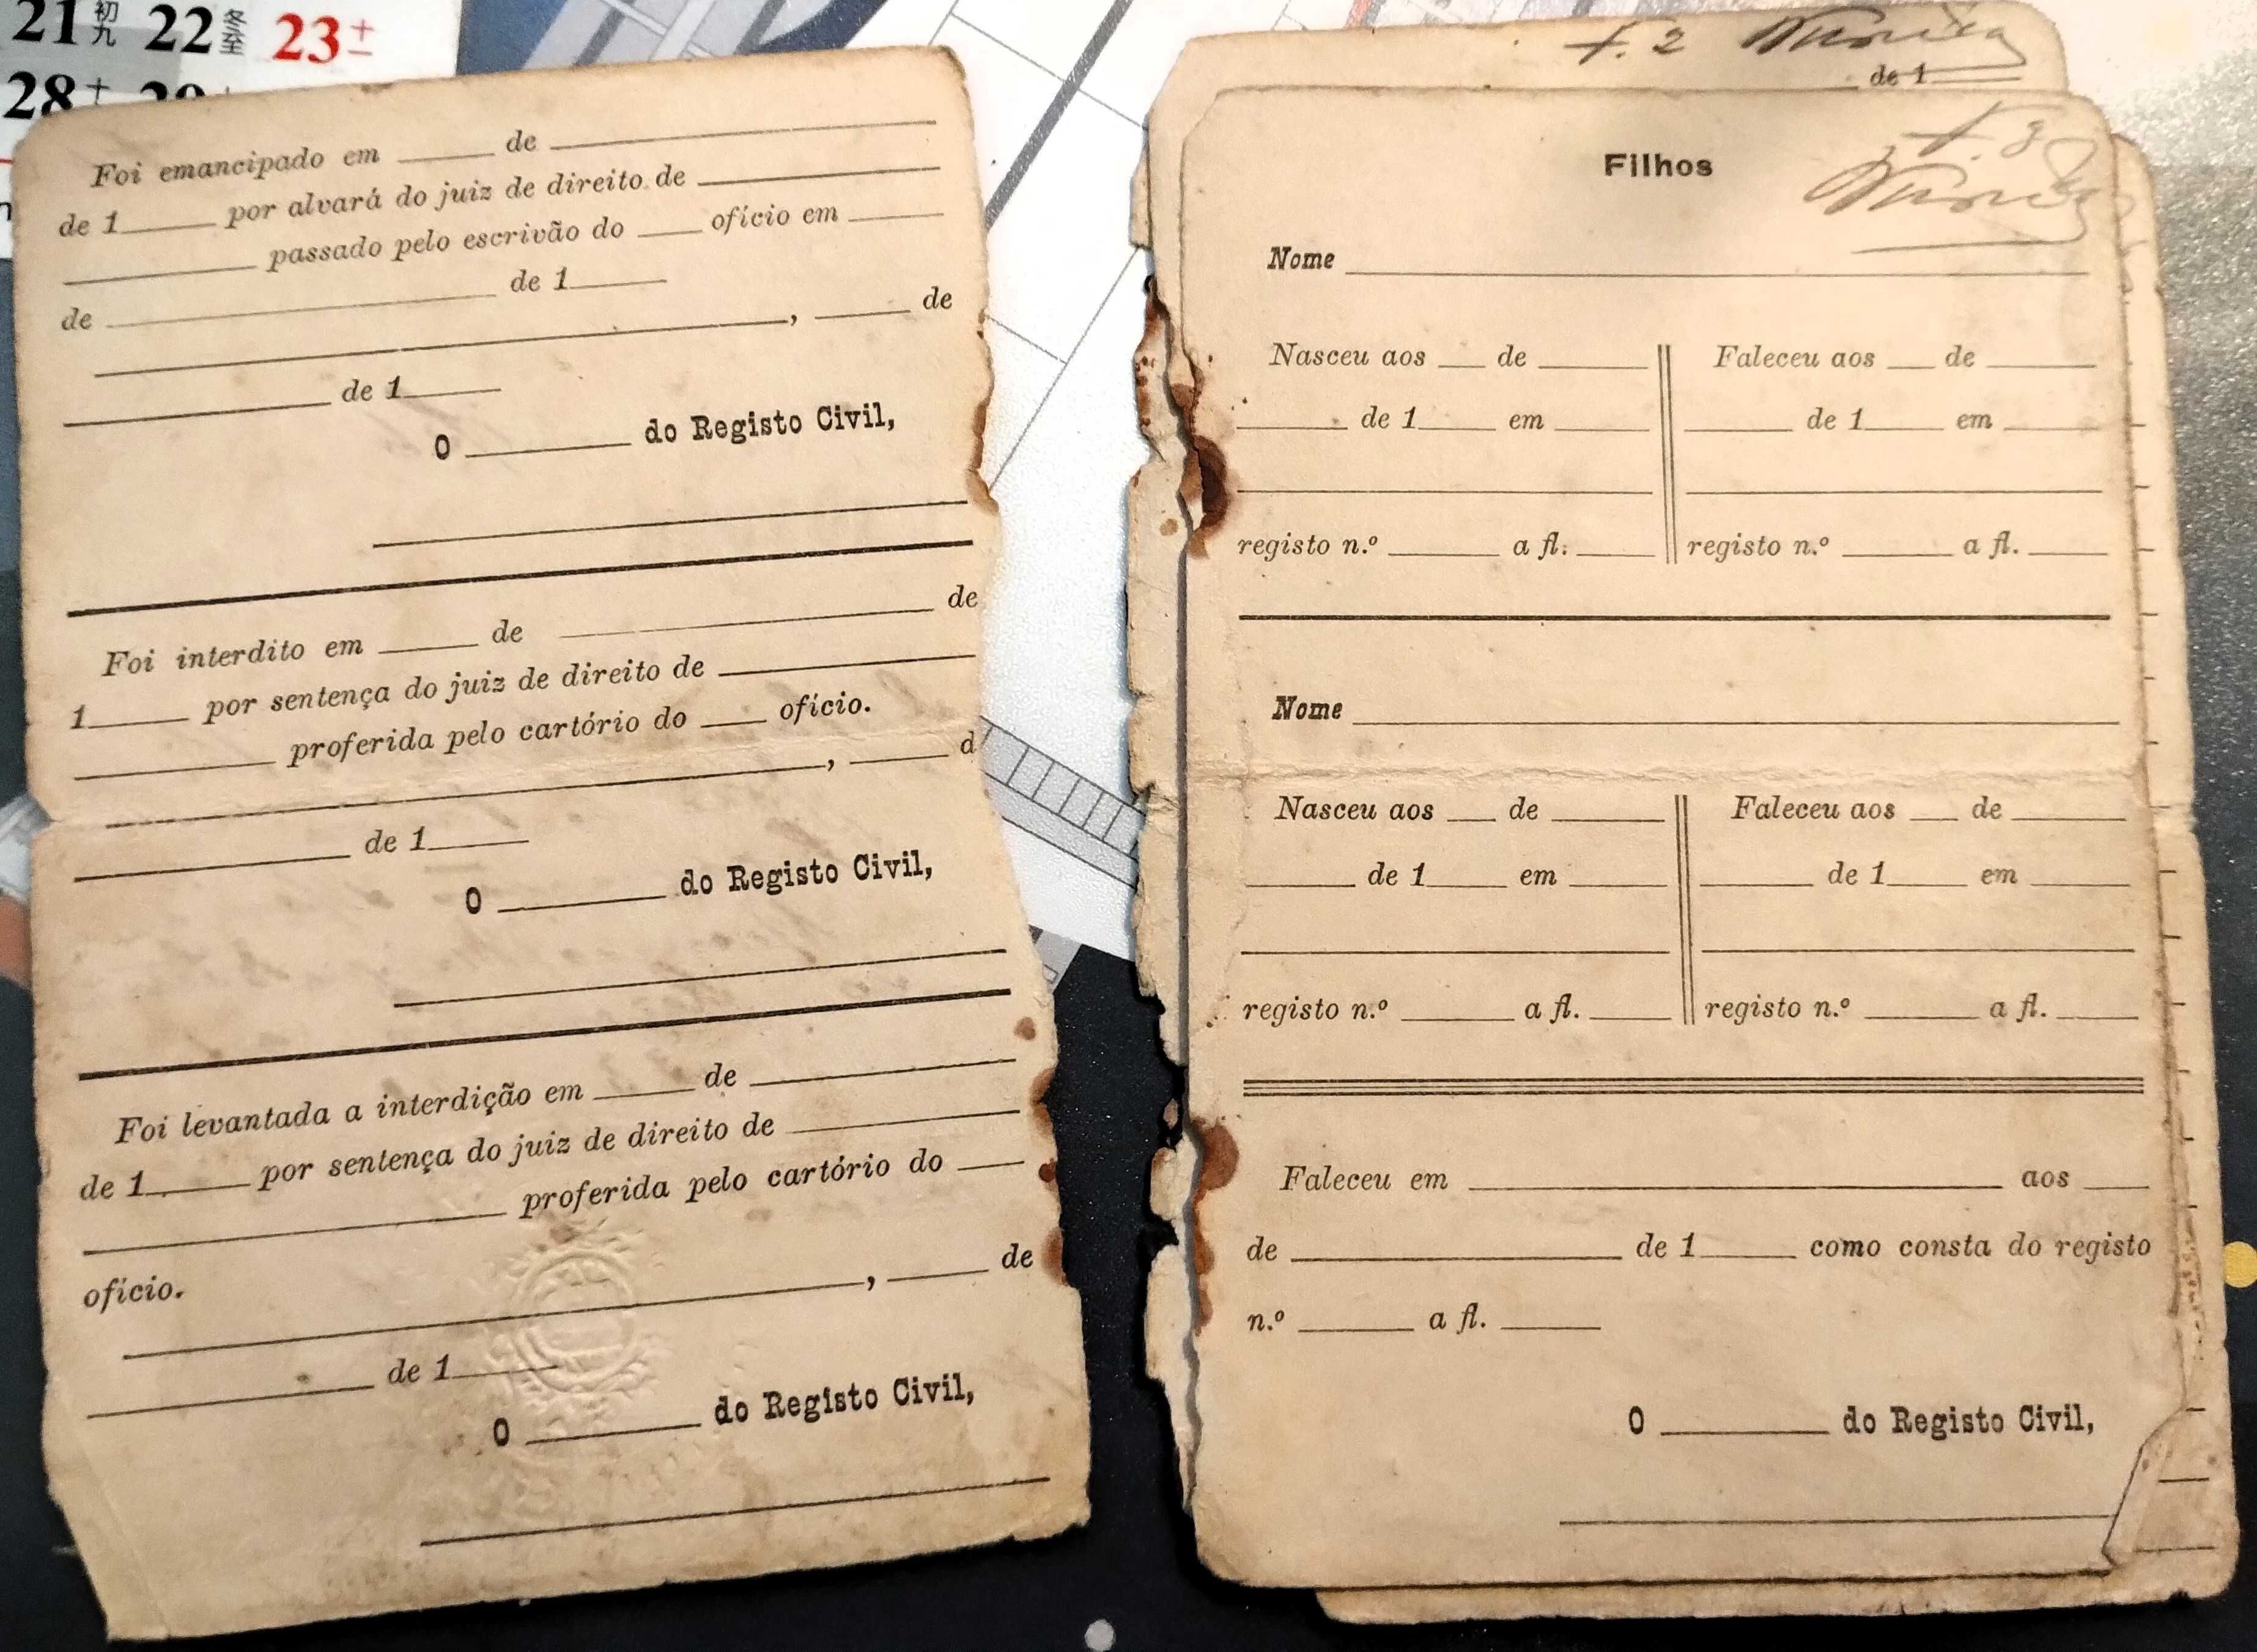 21 初九 22 冬至 23 十一
28 十 29
Foi emancipado em ____ de ____
de 1____ por alvará do juiz de direito de ____
____ passado pelo escrivão do ____ ofício em ____
de ____ de 1____
____, ____ de
____ de 1____
O ____ do Registo Civil,
Foi interdito em ____ de ____ de
1____ por sentença do juiz de direito de ____
____ proferida pelo cartório do ____ ofício.
____, ____ d
____ de 1____
O ____ do Registo Civil,
Foi levantada a interdição em ____ de ____
de 1____ por sentença do juiz de direito de ____
____ proferida pelo cartório do ____
ofício. ____, ____ de
____ de 1____
O ____ do Registo Civil,
f. 2
____ de 1____
f. 3
Filhos
Nome ____
Nasceu aos ____ de ____ Faleceu aos ____ de ____
____ de 1____ em ____ ____ de 1____ em ____
registo n.º ____ a fl. ____ registo n.º ____ a fl. ____
Nome ____
Nasceu aos ____ de ____ Faleceu aos ____ de ____
____ de 1____ em ____ ____ de 1____ em ____
registo n.º ____ a fl. ____ registo n.º ____ a fl. ____
Faleceu em ____ aos ____
de ____ de 1____ como consta do registo
n.º ____ a fl. ____
O ____ do Registo Civil,